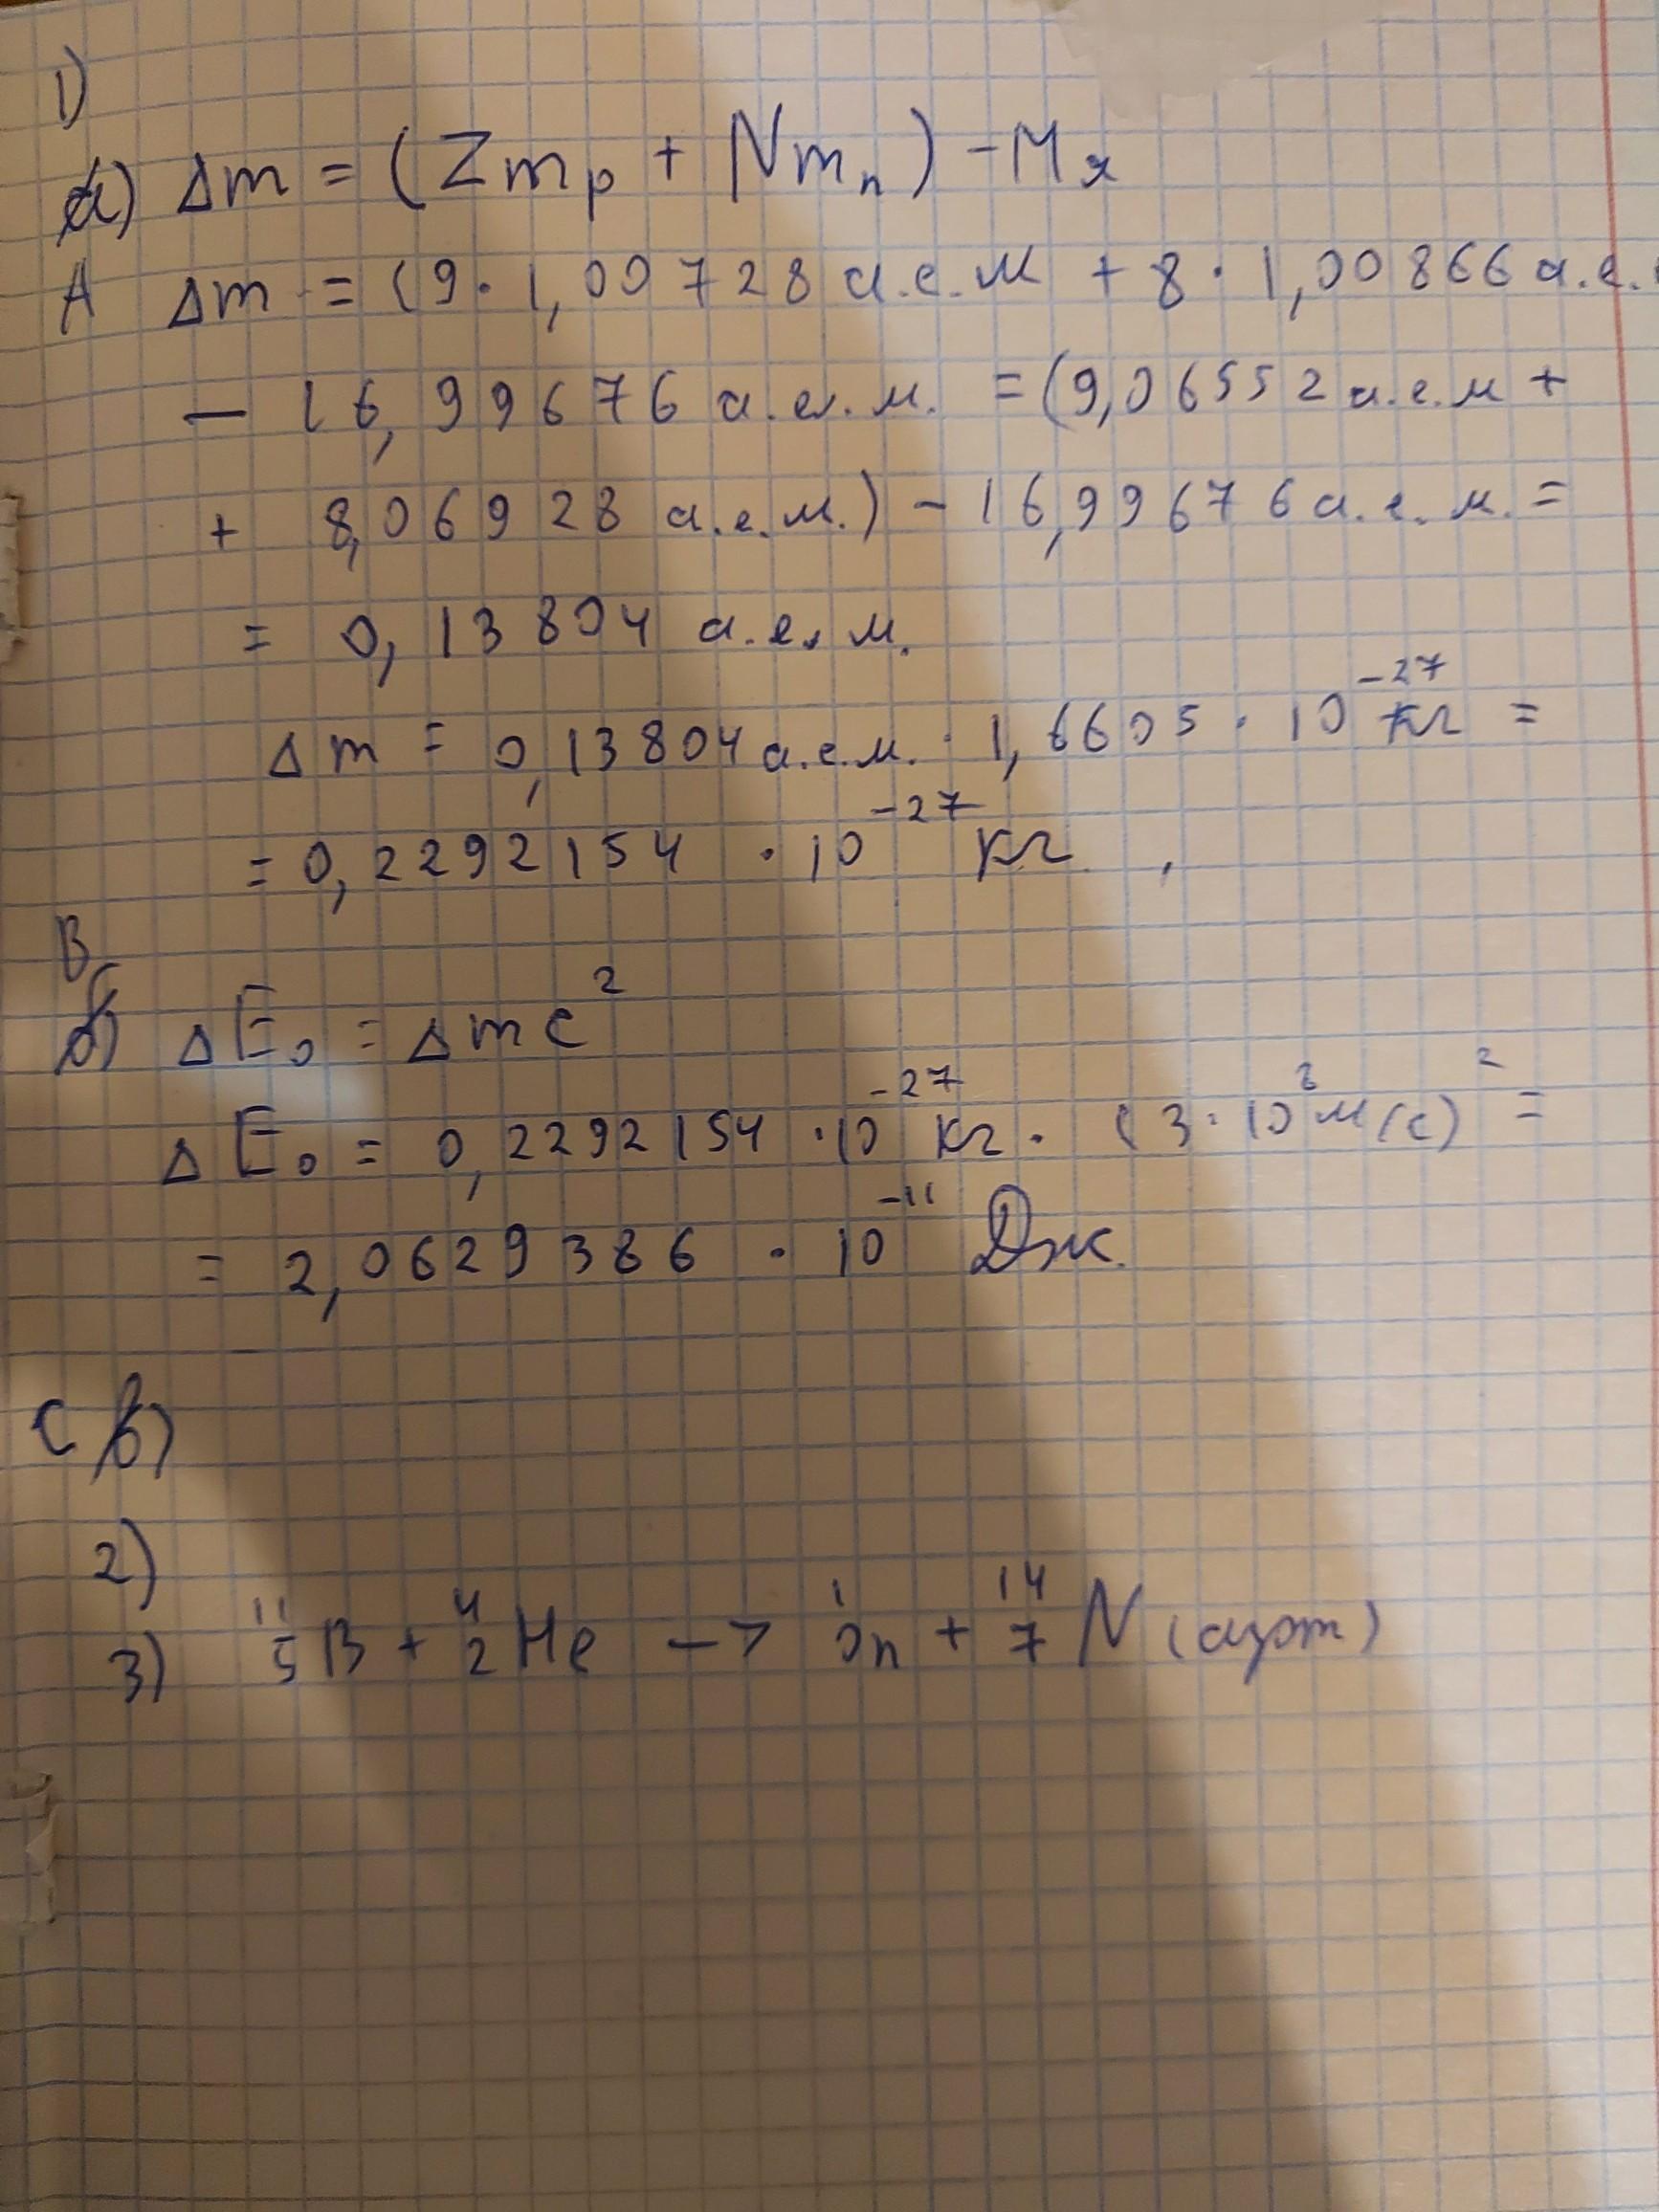 1)
а) Δm = (Zmₚ + Nmₙ) - Mя
A Δm = (9 · 1,00728 а.е.м + 8 · 1,00866 а.е.
- 16,99676 а.е.м. = (9,06552 а.е.м +
+ 8,06928 а.е.м.) - 16,99676 а.е.м. =
= 0,13804 а.е.м.
Δm = 0,13804 а.е.м. · 1,6605 · 10⁻²⁷ кг =
= 0,2292154 · 10⁻²⁷ кг
B
б) ΔE₀ = Δmc²
ΔE₀ = 0,2292154 · 10⁻²⁷ кг · (3 · 10⁸ м/с)² =
= 2,0629386 · 10⁻¹¹ Дж.
C в)
2)
3) ¹¹₅B + ⁴₂He -> ¹₀n + ¹⁴₇N (азот)